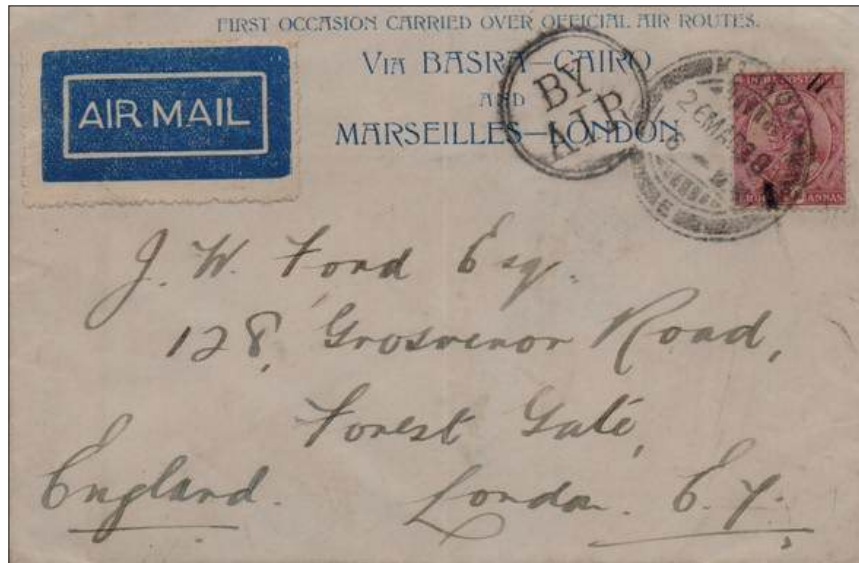 FIRST OCCASION CARRIED OVER OFFICIAL AIR ROUTES.
VIA BASRA–CAIRO
AND
MARSEILLES–LONDON
AIR MAIL
BY
AIR
J. W. Ford Esq.
128, Grosvenor Road,
Forest Gate,
London. E.7.
England.